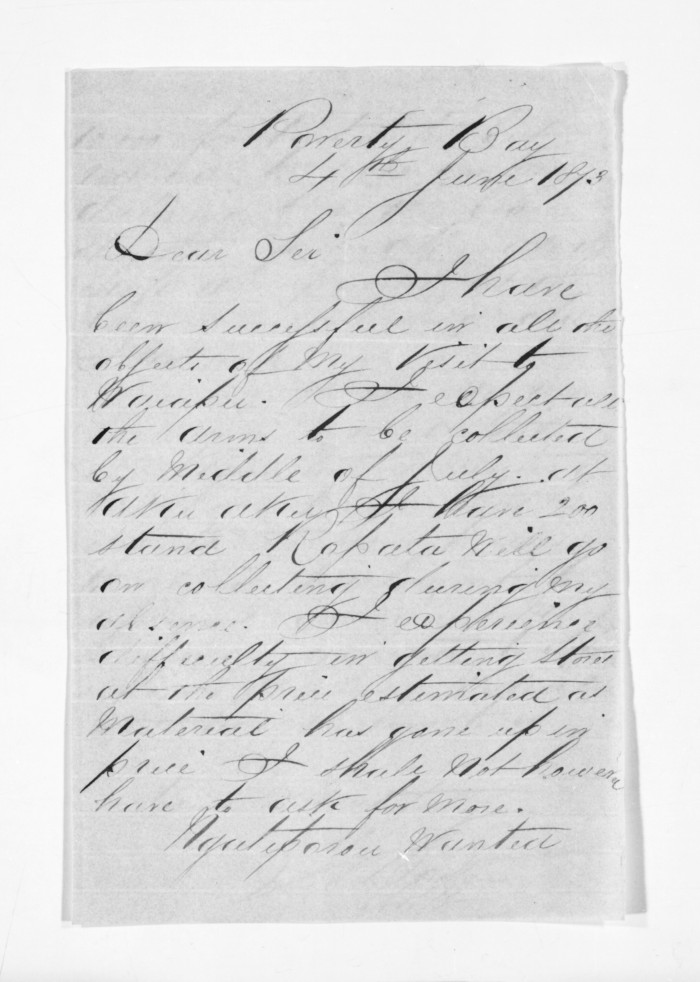 Poverty Bay
4th June 1873
Dear Sir
I have
been successful in all the
objects of my visit to
Waiapu. I expect all
the arms to be collected
by Middle of July. at
I have 200
stand Ropata will go
on collecting during my
absence. I experience
difficulty in getting stores
at the price estimated as
Material has gone up in
price I shall not however
have to ask for more.
Ngatiporou Wanted